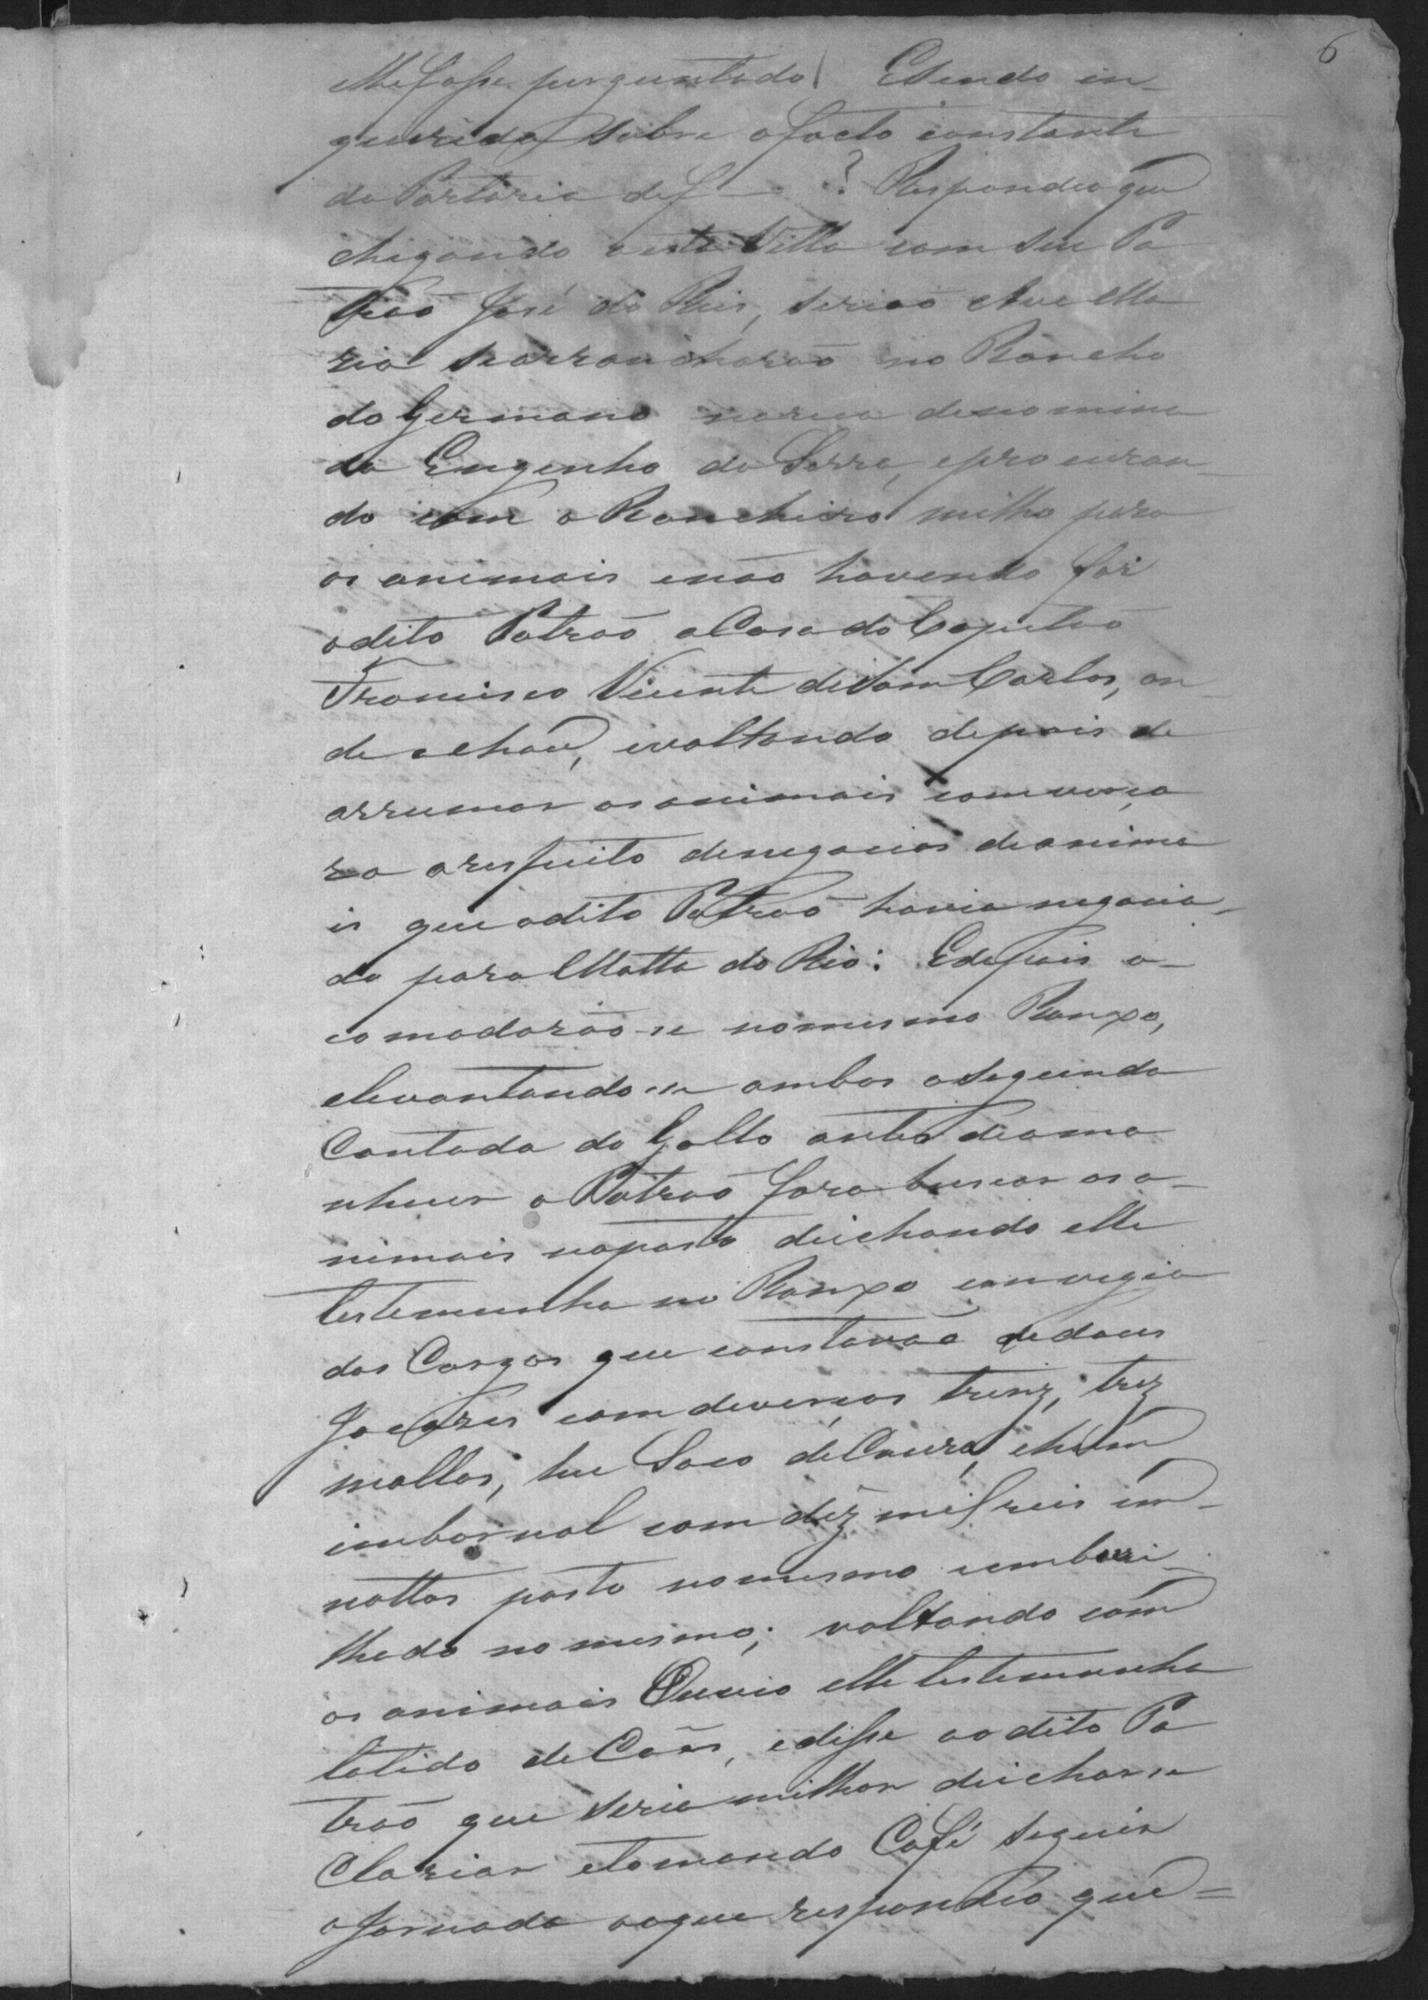 6
lhe fosse perguntado. E sendo in-
querido sobre o facto constante
da Portaria de f — ? Respondeo que
chegando a esta Villa com seu Pa
trão José dos Reis, serião Ave Ma
ria se arrancharão no Rancho
do Germano na rua denomina
da Engenho da Serra, e procuran-
do com o Rancheiro milho para
os animais e não havendo foi
o dito Patrão a Casa do Capitão
Francisco Vicente de Sam Carlos, on-
de achou, e voltando depois de
arrumar os animais conversa
ra a respeito de negocios de anima
is que o dito Patrão havia negocia-
do para Matta do Rio: E depois a-
comodarão-se no mesmo Ranxo,
e levantando-se ambos a segunda
Cantada do Gallo antes de ama
nhecer o Patrão fora buscar os a-
nimais no pasto deichando elle
testemunha no Ranxo em vegia
das Cargas que constavão de dous
Jacazes com diversos trenz, trez
mallas, hu Saco de Couro, e hum
imbornal com déz mil reis em
nottas posto no mesmo e embru-
lhado no mesmo; voltando com
os animais Ouvio elle testemunha
latido de Cães, e disse ao dito Pa
trão que seria milhor deichar-se
Clariar e tomando Café seguir
a Jornada ao que respondeo que =